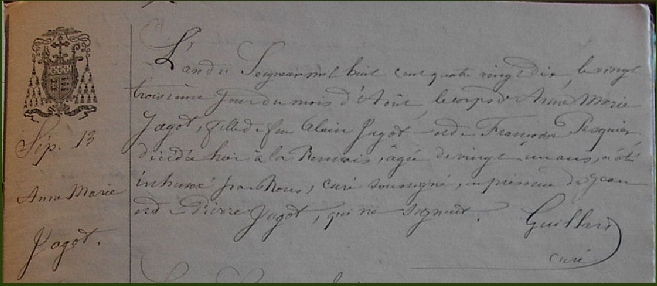 L'an du Seigneur mil huit cent quatre vingt dix, le vingt
troisième jour du mois d'Août, le corps d'Anne Marie
Sép. 13
Jagot, fille de feu Alain Jagot et de Françoise
décédée hier à la, âgée de vingt un ans, a été
Anne Marie
inhumé par Nous, curé soussigné, en présence de Jean
et de Pierre Jagot, qui ne signent. Guillard
Jagot.
curé